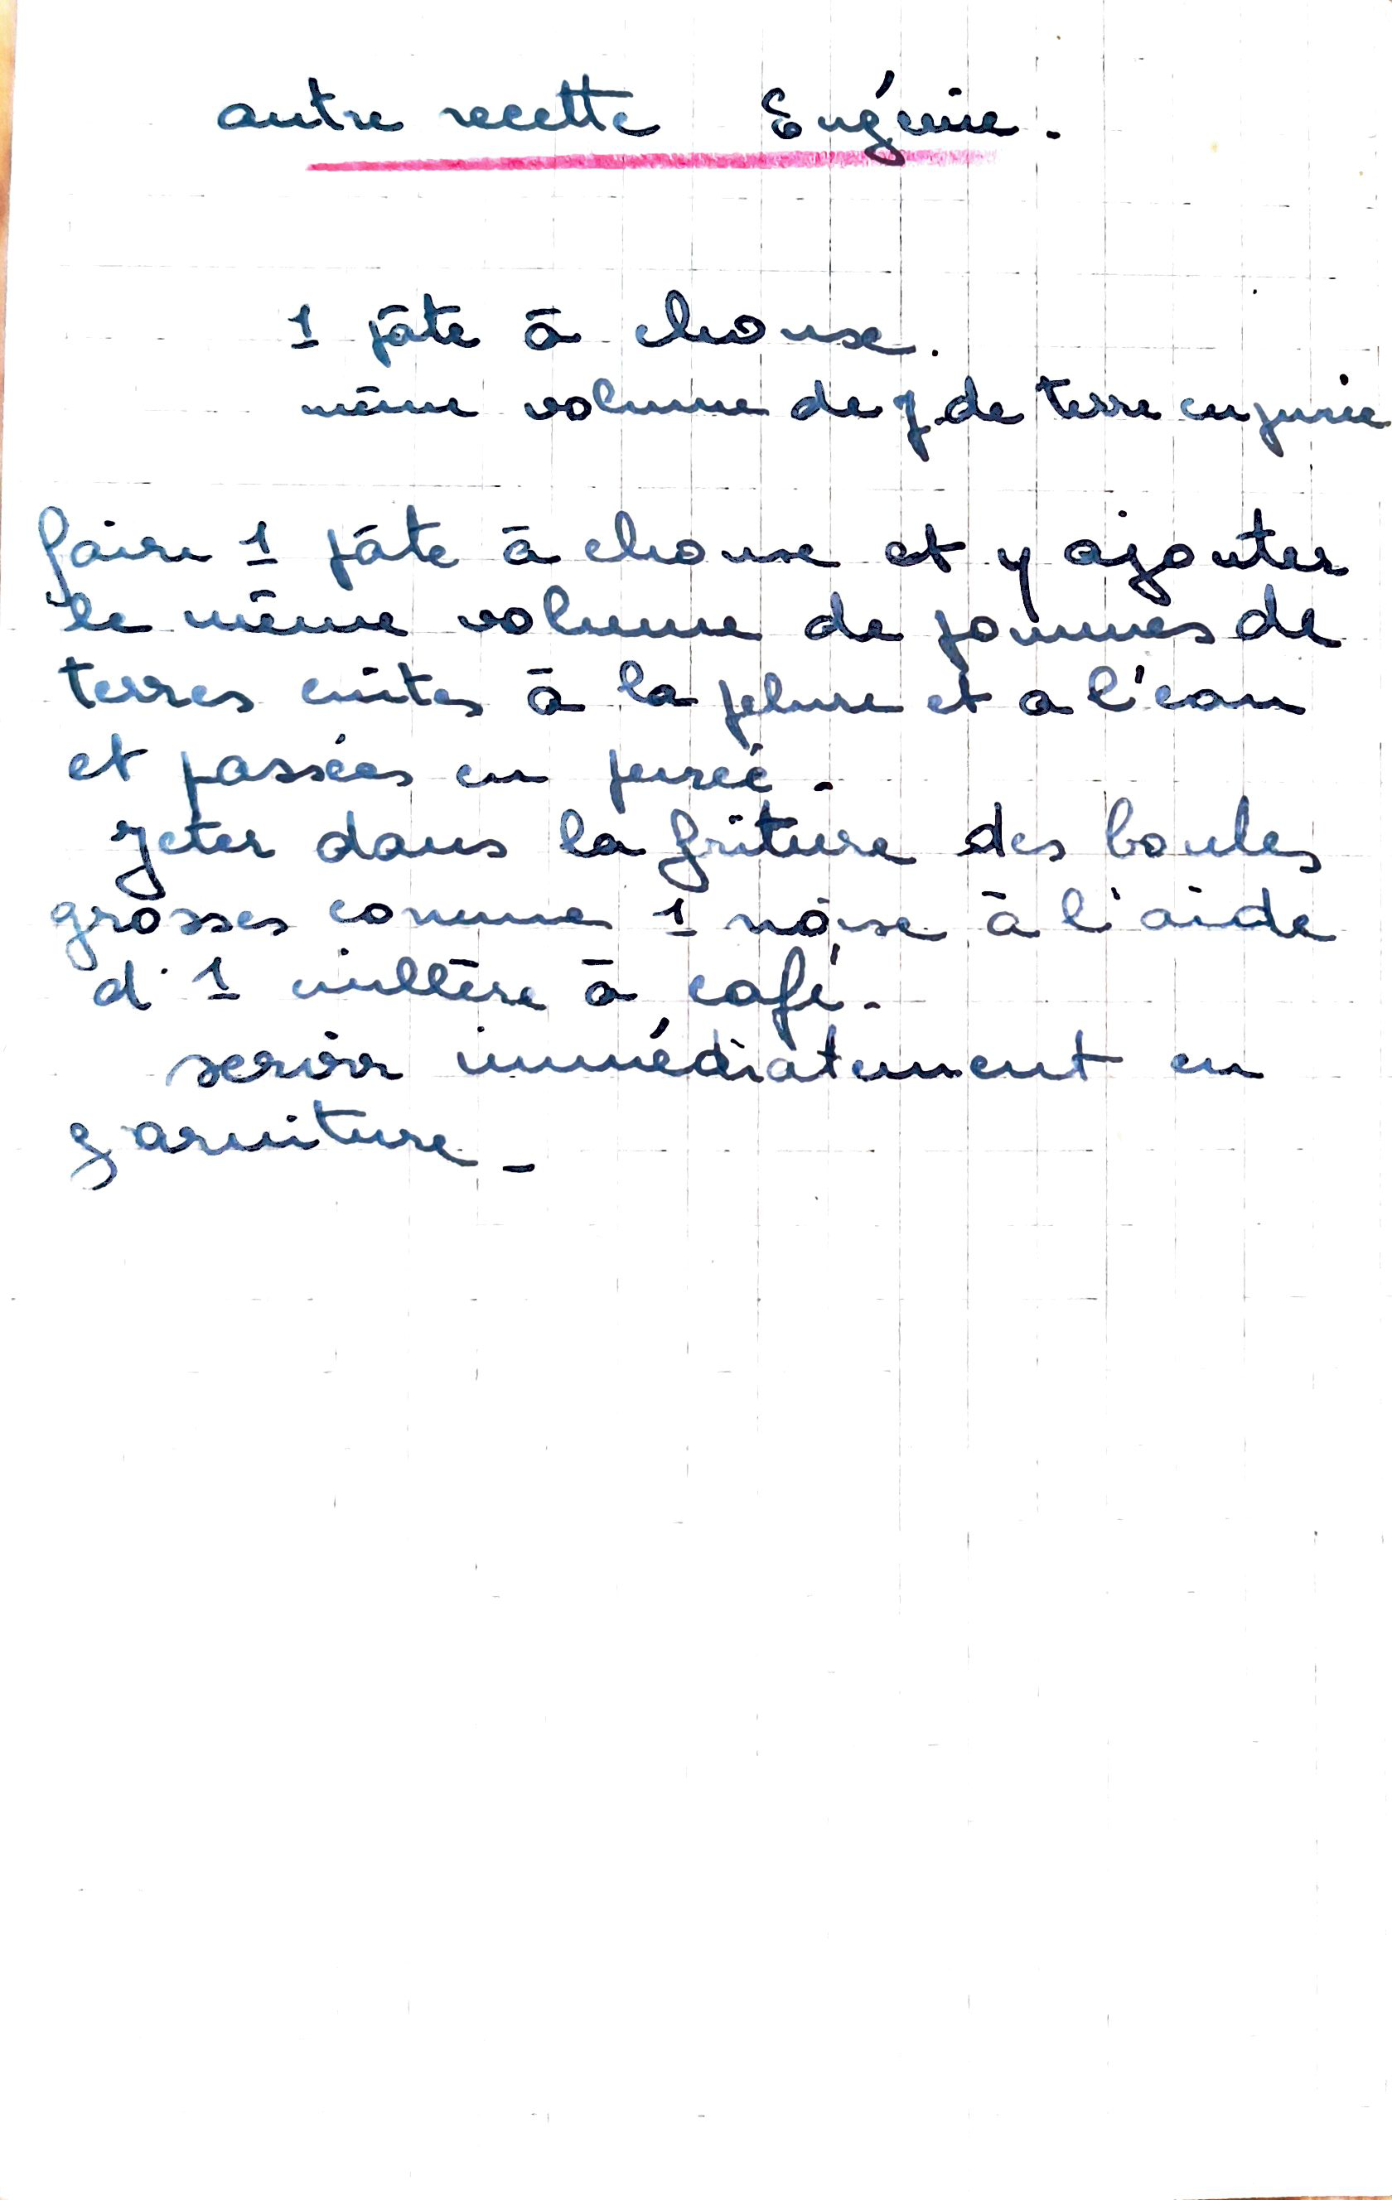 autre recette Eugénie.
1 pâte à choux.
même volume de p. de terre en purée
faire 1 pâte à choux et y ajouter
le même volume de pommes de
terres cuites à la pelure et a l'eau
et passées en purée.
Jeter dans la friture des boules
grosses comme 1 noix à l'aide
d'1 cuillère à café.
servir immédiatement en
garniture.